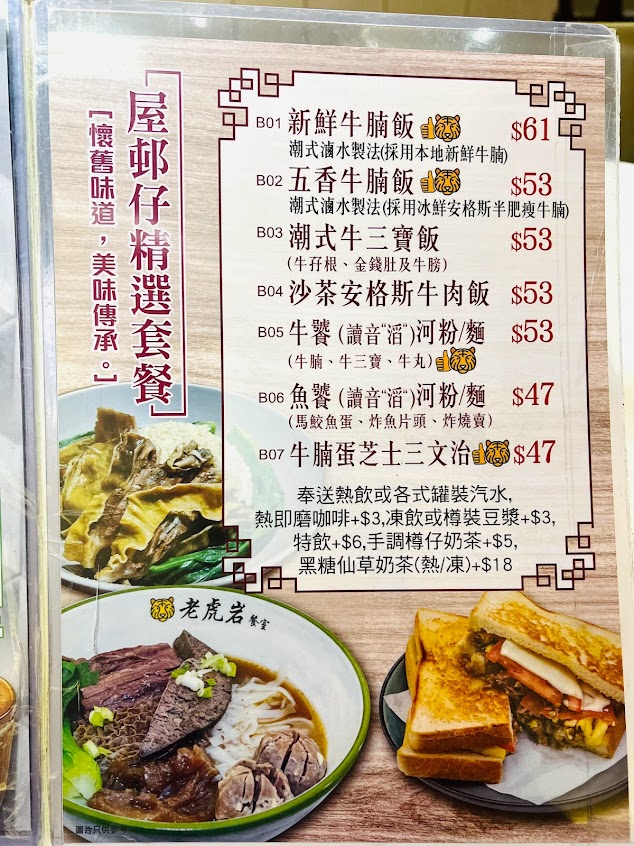 屋邨仔精選套餐
[懷舊味道，美味傳承。]
B01 新鮮牛腩飯 $61
潮式滷水製法(採用本地新鮮牛腩)
B02 五香牛腩飯 $53
潮式滷水製法(採用冰鮮安格斯半肥瘦牛腩)
B03 潮式牛三寶飯 $53
(牛孖根、金錢肚及牛膀)
B04 沙茶安格斯牛肉飯 $53
B05 牛饕(讀音“滔”)河粉/麵 $53
(牛腩、牛三寶、牛丸)
B06 魚饕(讀音“滔”)河粉/麵 $47
(馬鮫魚蛋、炸魚片頭、炸燒賣)
B07 牛腩蛋芝士三文治 $47
奉送熱飲或各式罐裝汽水,
熱即磨咖啡+$3,凍飲或樽裝豆漿+$3,
特飲+$6,手調樽仔奶茶+$5,
黑糖仙草奶茶(熱/凍)+$18
老虎岩餐室
圖片只供參考